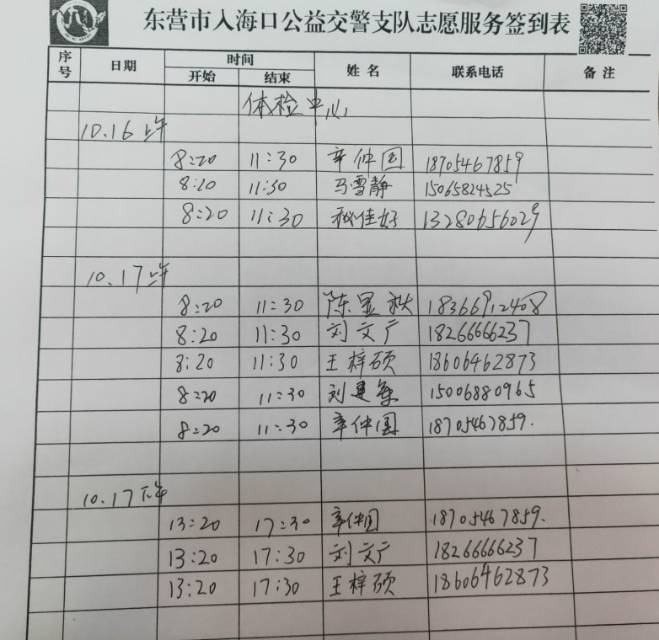 东营市入海口公益交警支队志愿服务签到表
序号 日期 时间 姓名 联系电话 备注
开始 结束
体检中心
10.16上午
8:20 11:30 辛仲国 18705467859
8:20 11:30 马雪静 15065824525
8:20 11:30 佳好 13280656029
10.17上午
8:20 11:30 陈显秋 18366912408
8:20 11:30 刘文广 18266666237
8:20 11:30 王梓硕 18606462873
8:20 11:30 刘建军 15006880965
8:20 11:30 辛仲国 18705467859.
10.17下午
13:20 17:30 辛仲国 18705467859.
13:20 17:30 刘文广 18266666237
13:20 17:30 王梓硕 18606462873